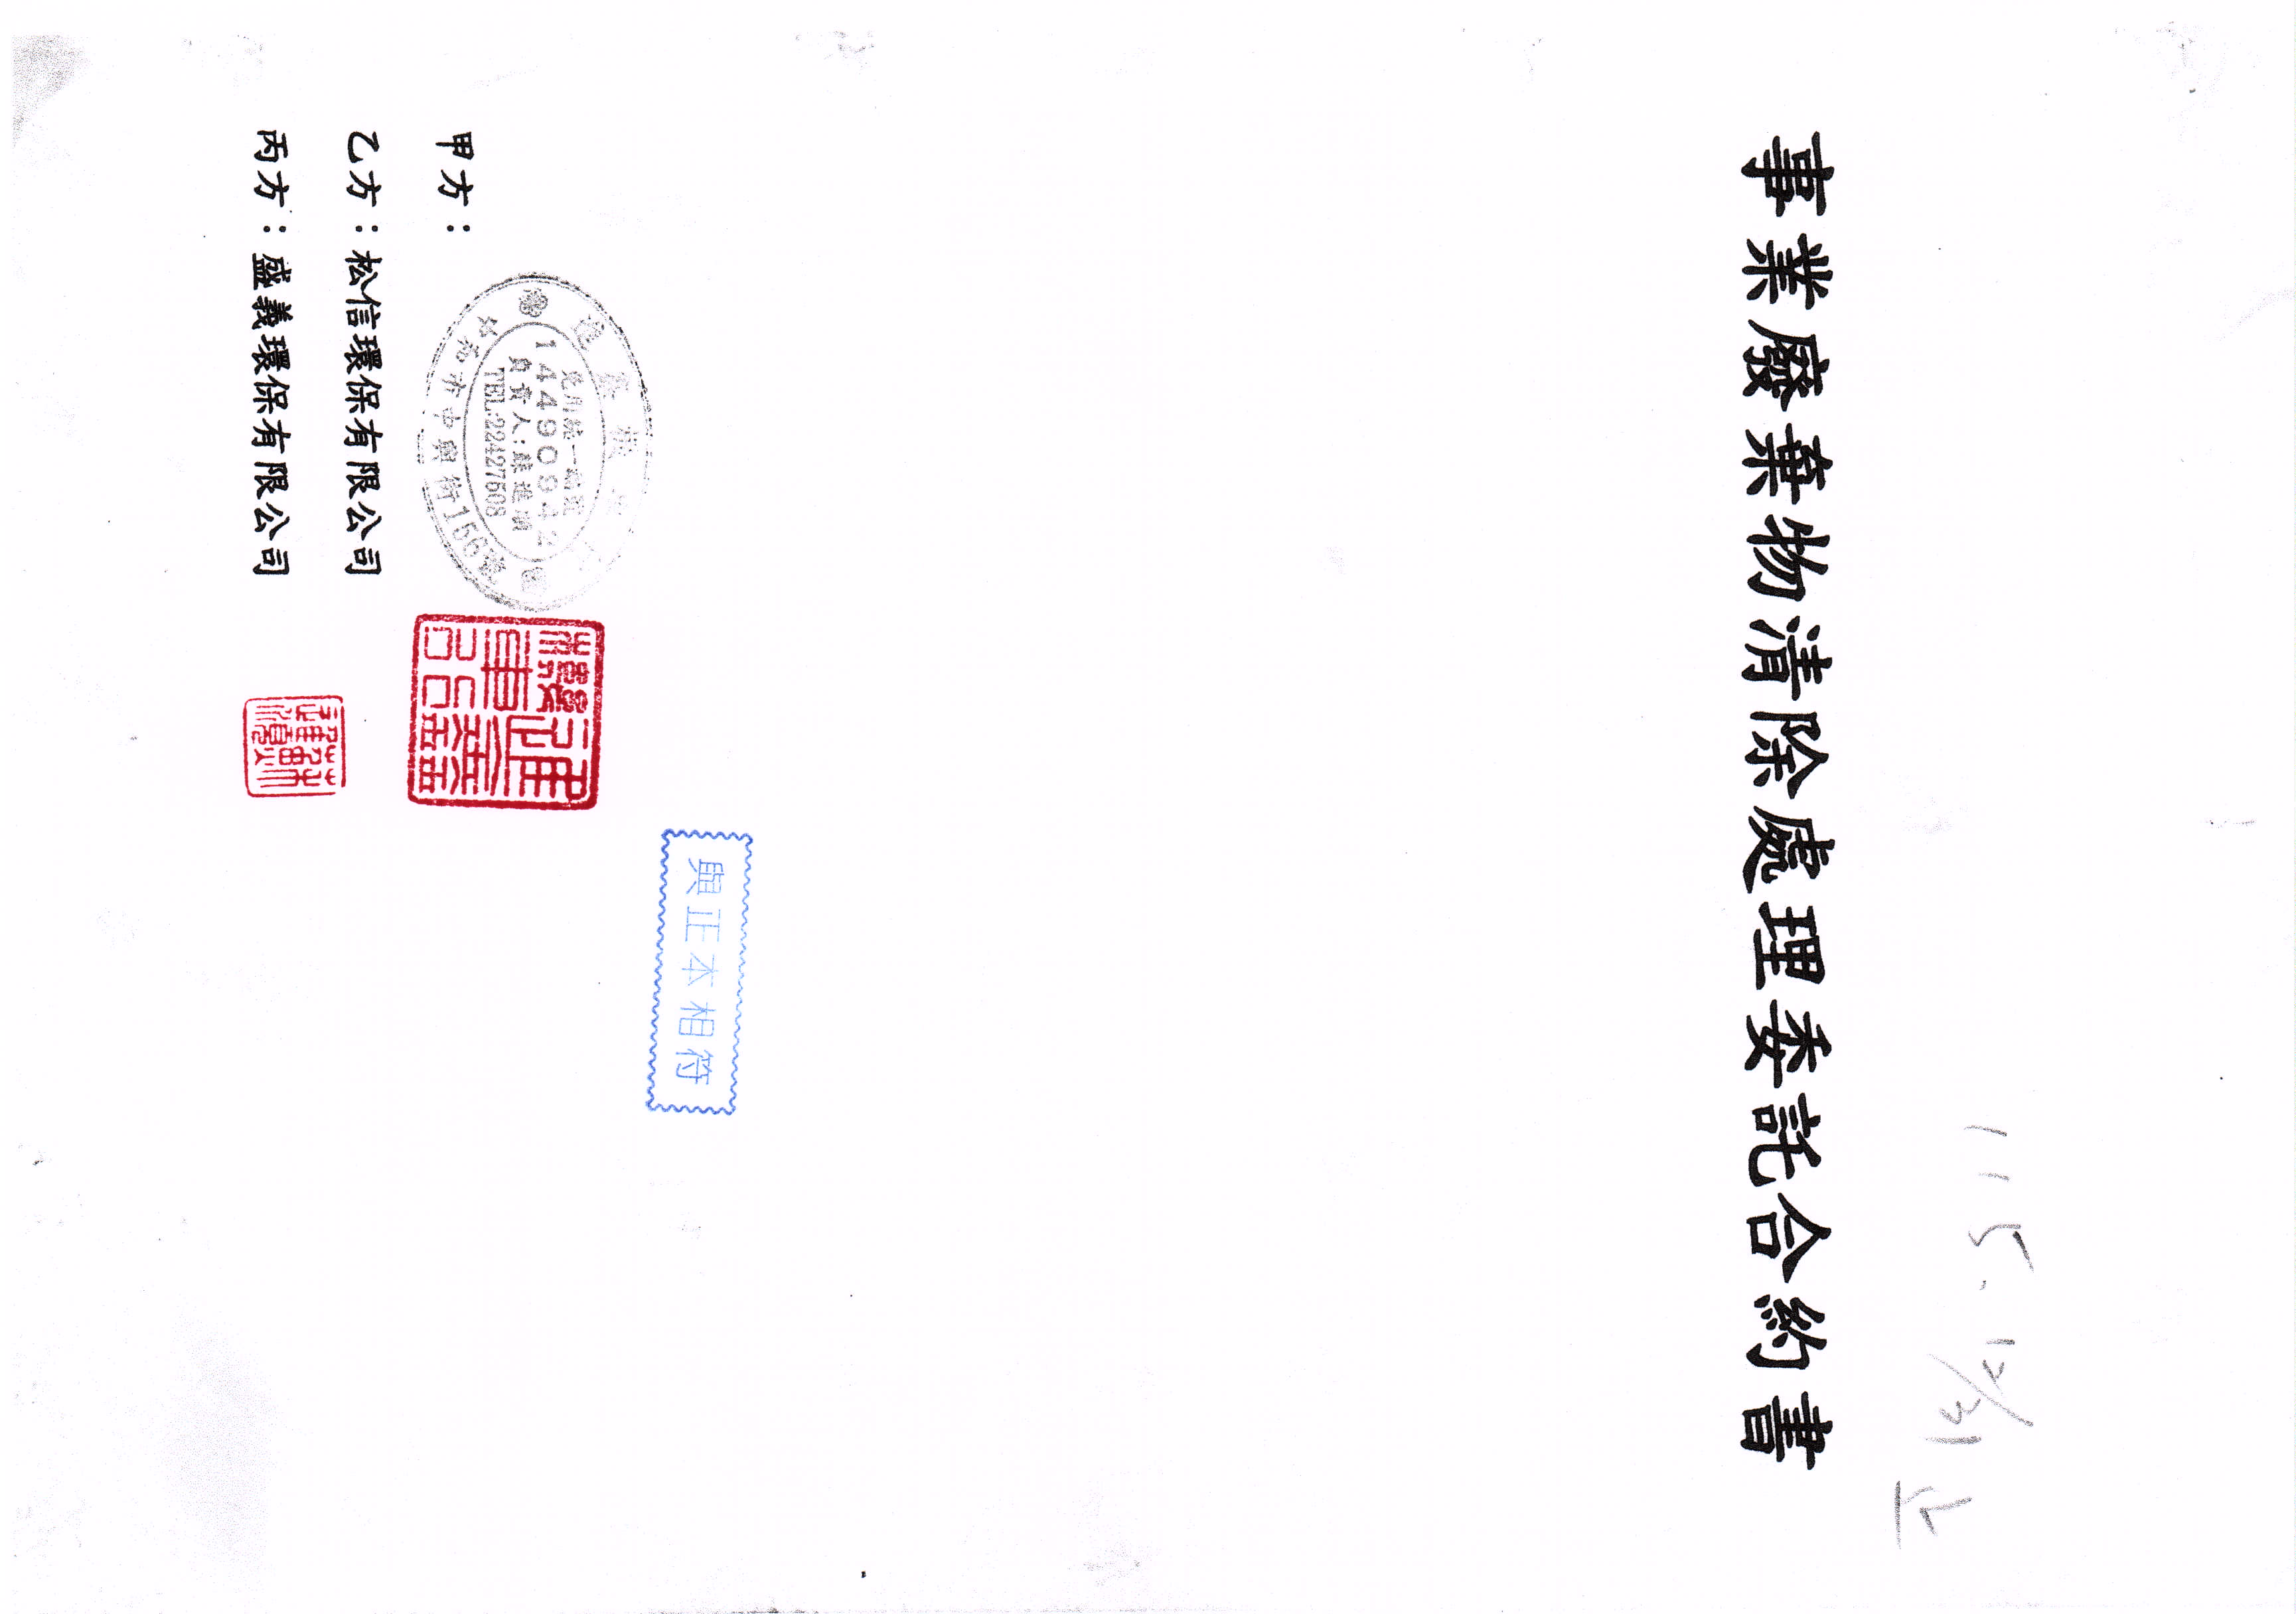 事業廢棄物清除處理委託合約書
與正本相符
甲方：
統一編號
14490842
負責人：
TEL:22427508
中和市中興街156號
乙方：松信環保有限公司
丙方：盛義環保有限公司